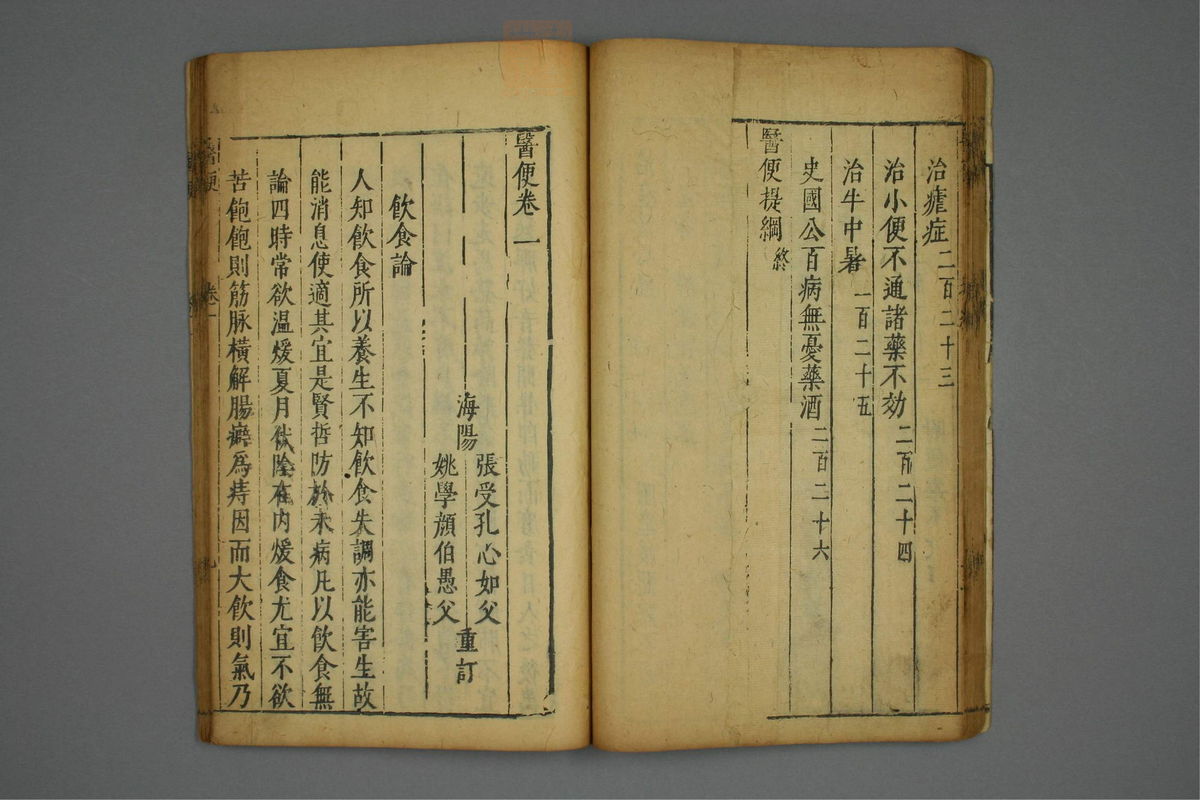 治瘧症 二百二十三
治小便不通諸藥不効 二百二十四
治牛中暑 一百二十五
史國公百病無憂藥酒 二百二十六
醫便提綱 終
醫便卷一
海陽
張受孔心如父
姚學顏伯愚父
重訂
飲食論
人知飲食所以養生不知飲食失調亦能害生故
能消息使適其宜是賢哲防於未病凡以飲食無
論四時常欲温煖夏月伏陰在内煖食尤宜不欲
苦飽飽則筋脉横解腸癖為痔因而大飲則氣乃
醫便 卷一 九